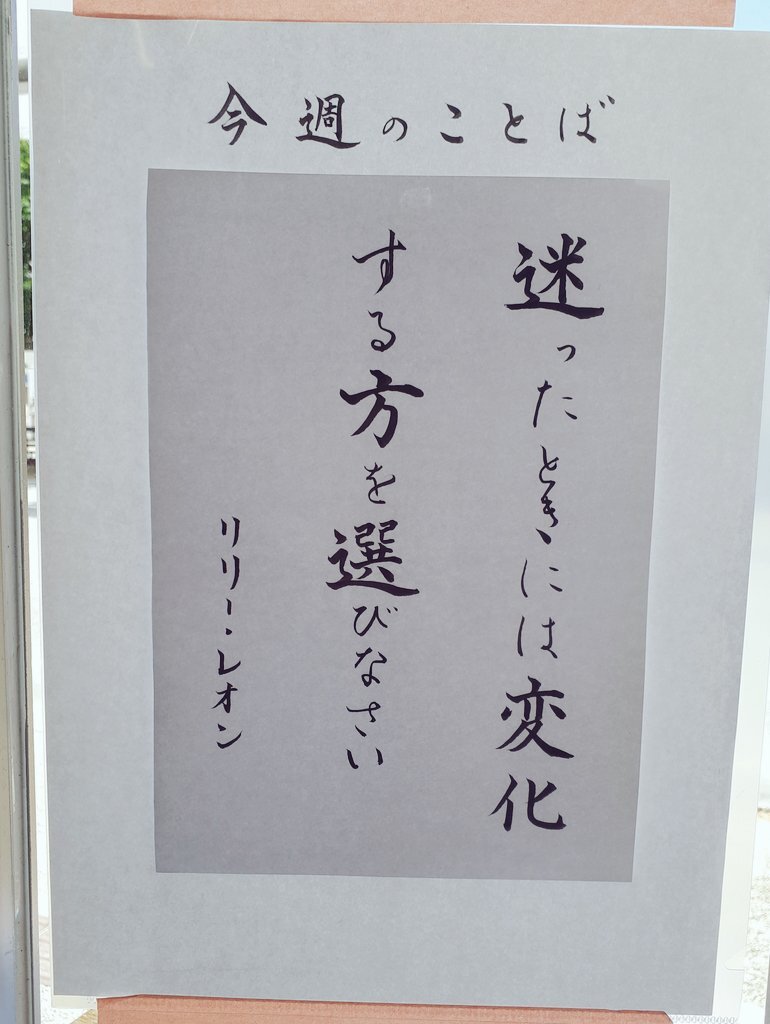 今週のことば
迷ったときには変化
する方を選びなさい
リリー・レオン